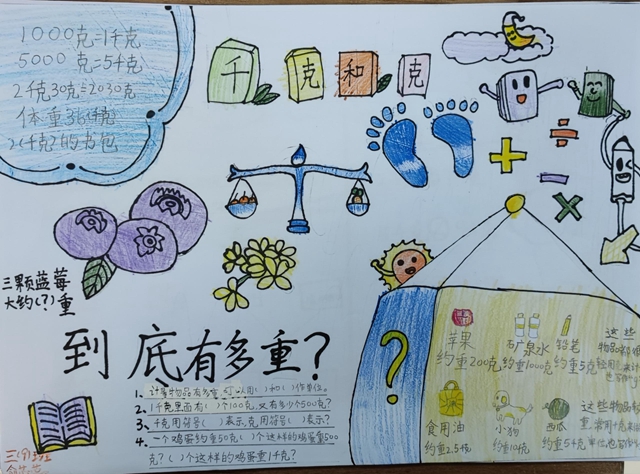 1000克=1千克
5000克=5千克
2千克30克=2030克
体重36(千克)
2(千克)的书包
千克和克
三颗蓝莓
大约(?)重
到底有多重?
1、计量物品有多重,可以用( )和( )作单位。
2、1千克里面有( )个100克,又有多少个500克?
3、千克用符号( )表示,克用符号( )表示?
4、一个鸡蛋约重50克( )个这样的鸡蛋重500
克?( )个这样的鸡蛋重1千克?
?
苹果
约重200克
矿泉水
约重1000克
铅笔
约重5克
这些
物品
食用油
约重2.5千克
小狗
约重10千克
西瓜
约重5千克
这些物品
三(1)班